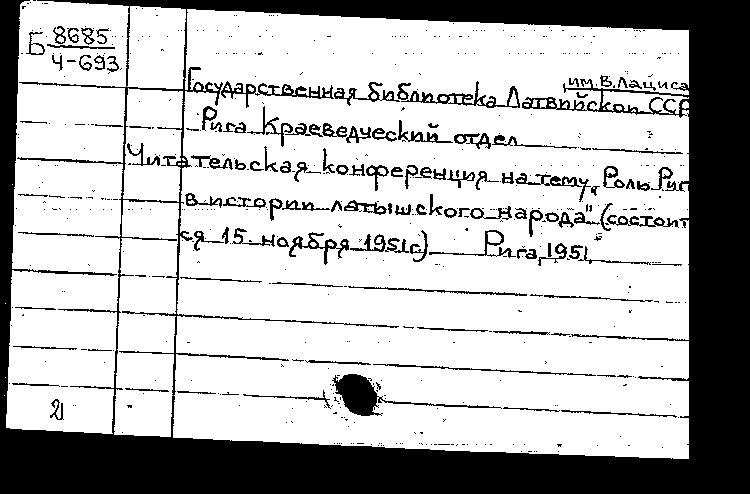 Б 8685
4-693
им. В. Лациса
Государственная библиотека Латвийской ССР
Рига Краеведческий отдел
Читательская конференция на тему „Роль Риг
в истории латышского народа" (состоит
ся 15 ноября 1951г.) Рига, 1951.
21